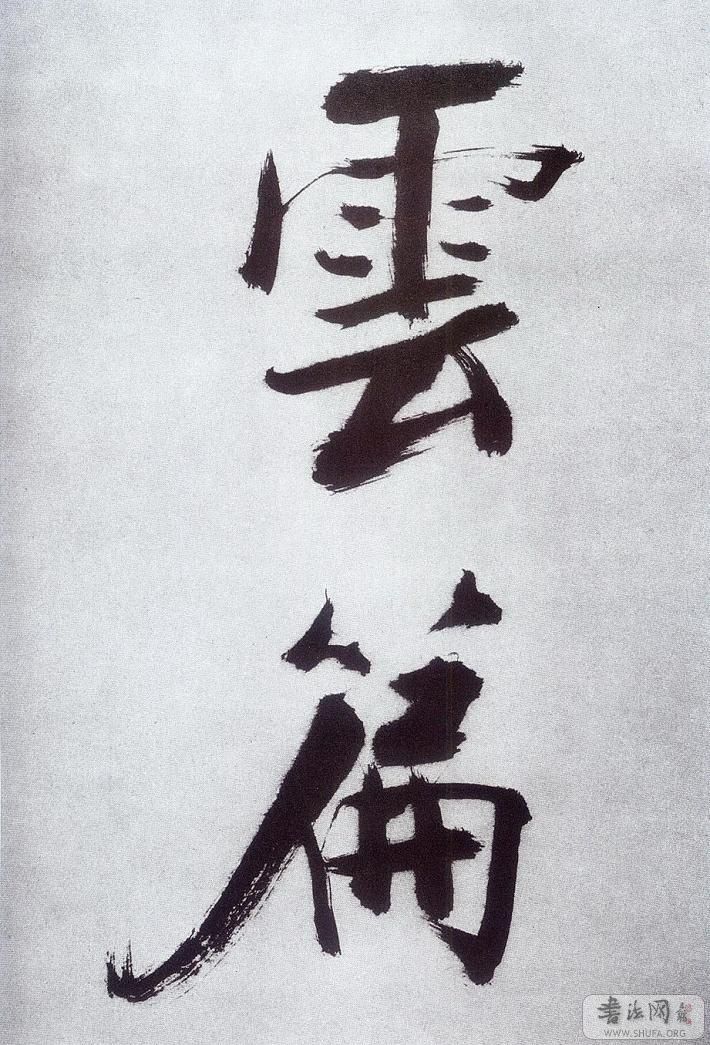 雲
篇
书法网
WWW.SHUFA.ORG